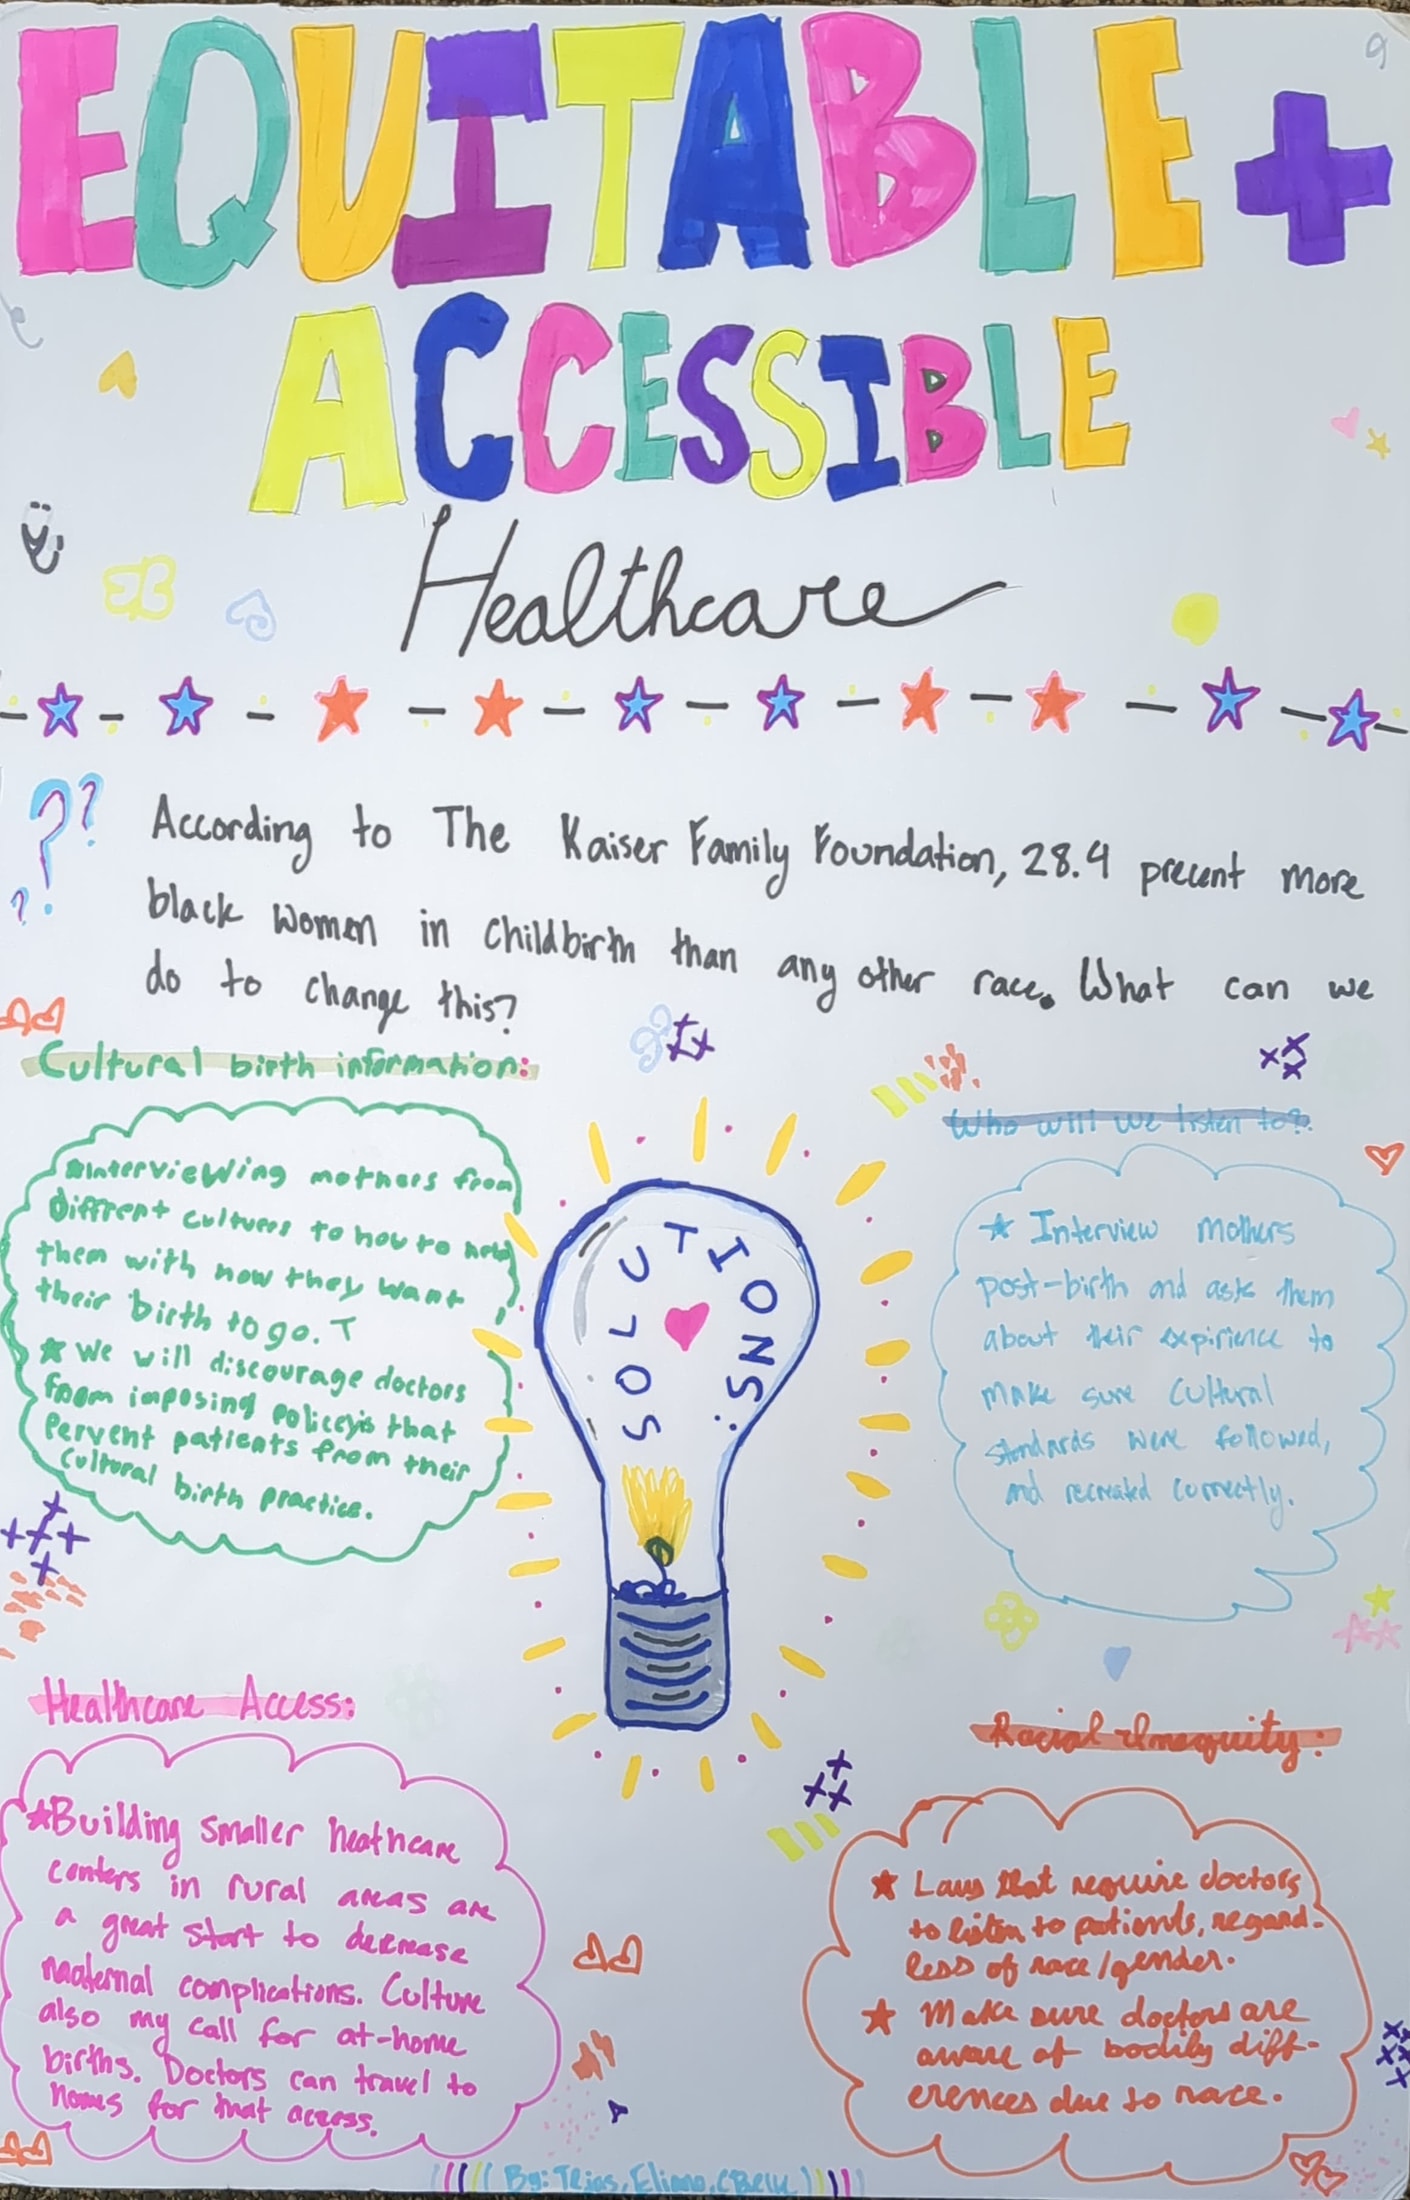 EQUITABLE +
ACCESSIBLE
Healthcare
? ? ?
According to The Kaiser Family Foundation, 28.4 precent more
black women in childbirth than any other race. What can we
do to change this?
Cultural birth information:
Interviewing mothers from
Diffrent cultures to how to help
them with how they want
their birth to go. T
We will discourage doctors
from imposing policeyis that
Pervent patients from their
Cultural birth practice.
SOLUTIONS:
Who will we listen to?:
Interview mothers
post-birth and asks them
about their expirience to
make sure cultural
standards were followed,
and recreated correctly.
Healthcare Access:
Building smaller heathcare
centers in rural areas are
a great start to decrease
maternal complications. Culture
also my call for at-home
births. Doctors can travel to
homes for that access.
Racial Inequity:
Laws that require doctors
to listen to patients, regard-
less of race/gender.
Make sure doctors are
aware of bodily diff-
erences due to race.
By: Tejas,